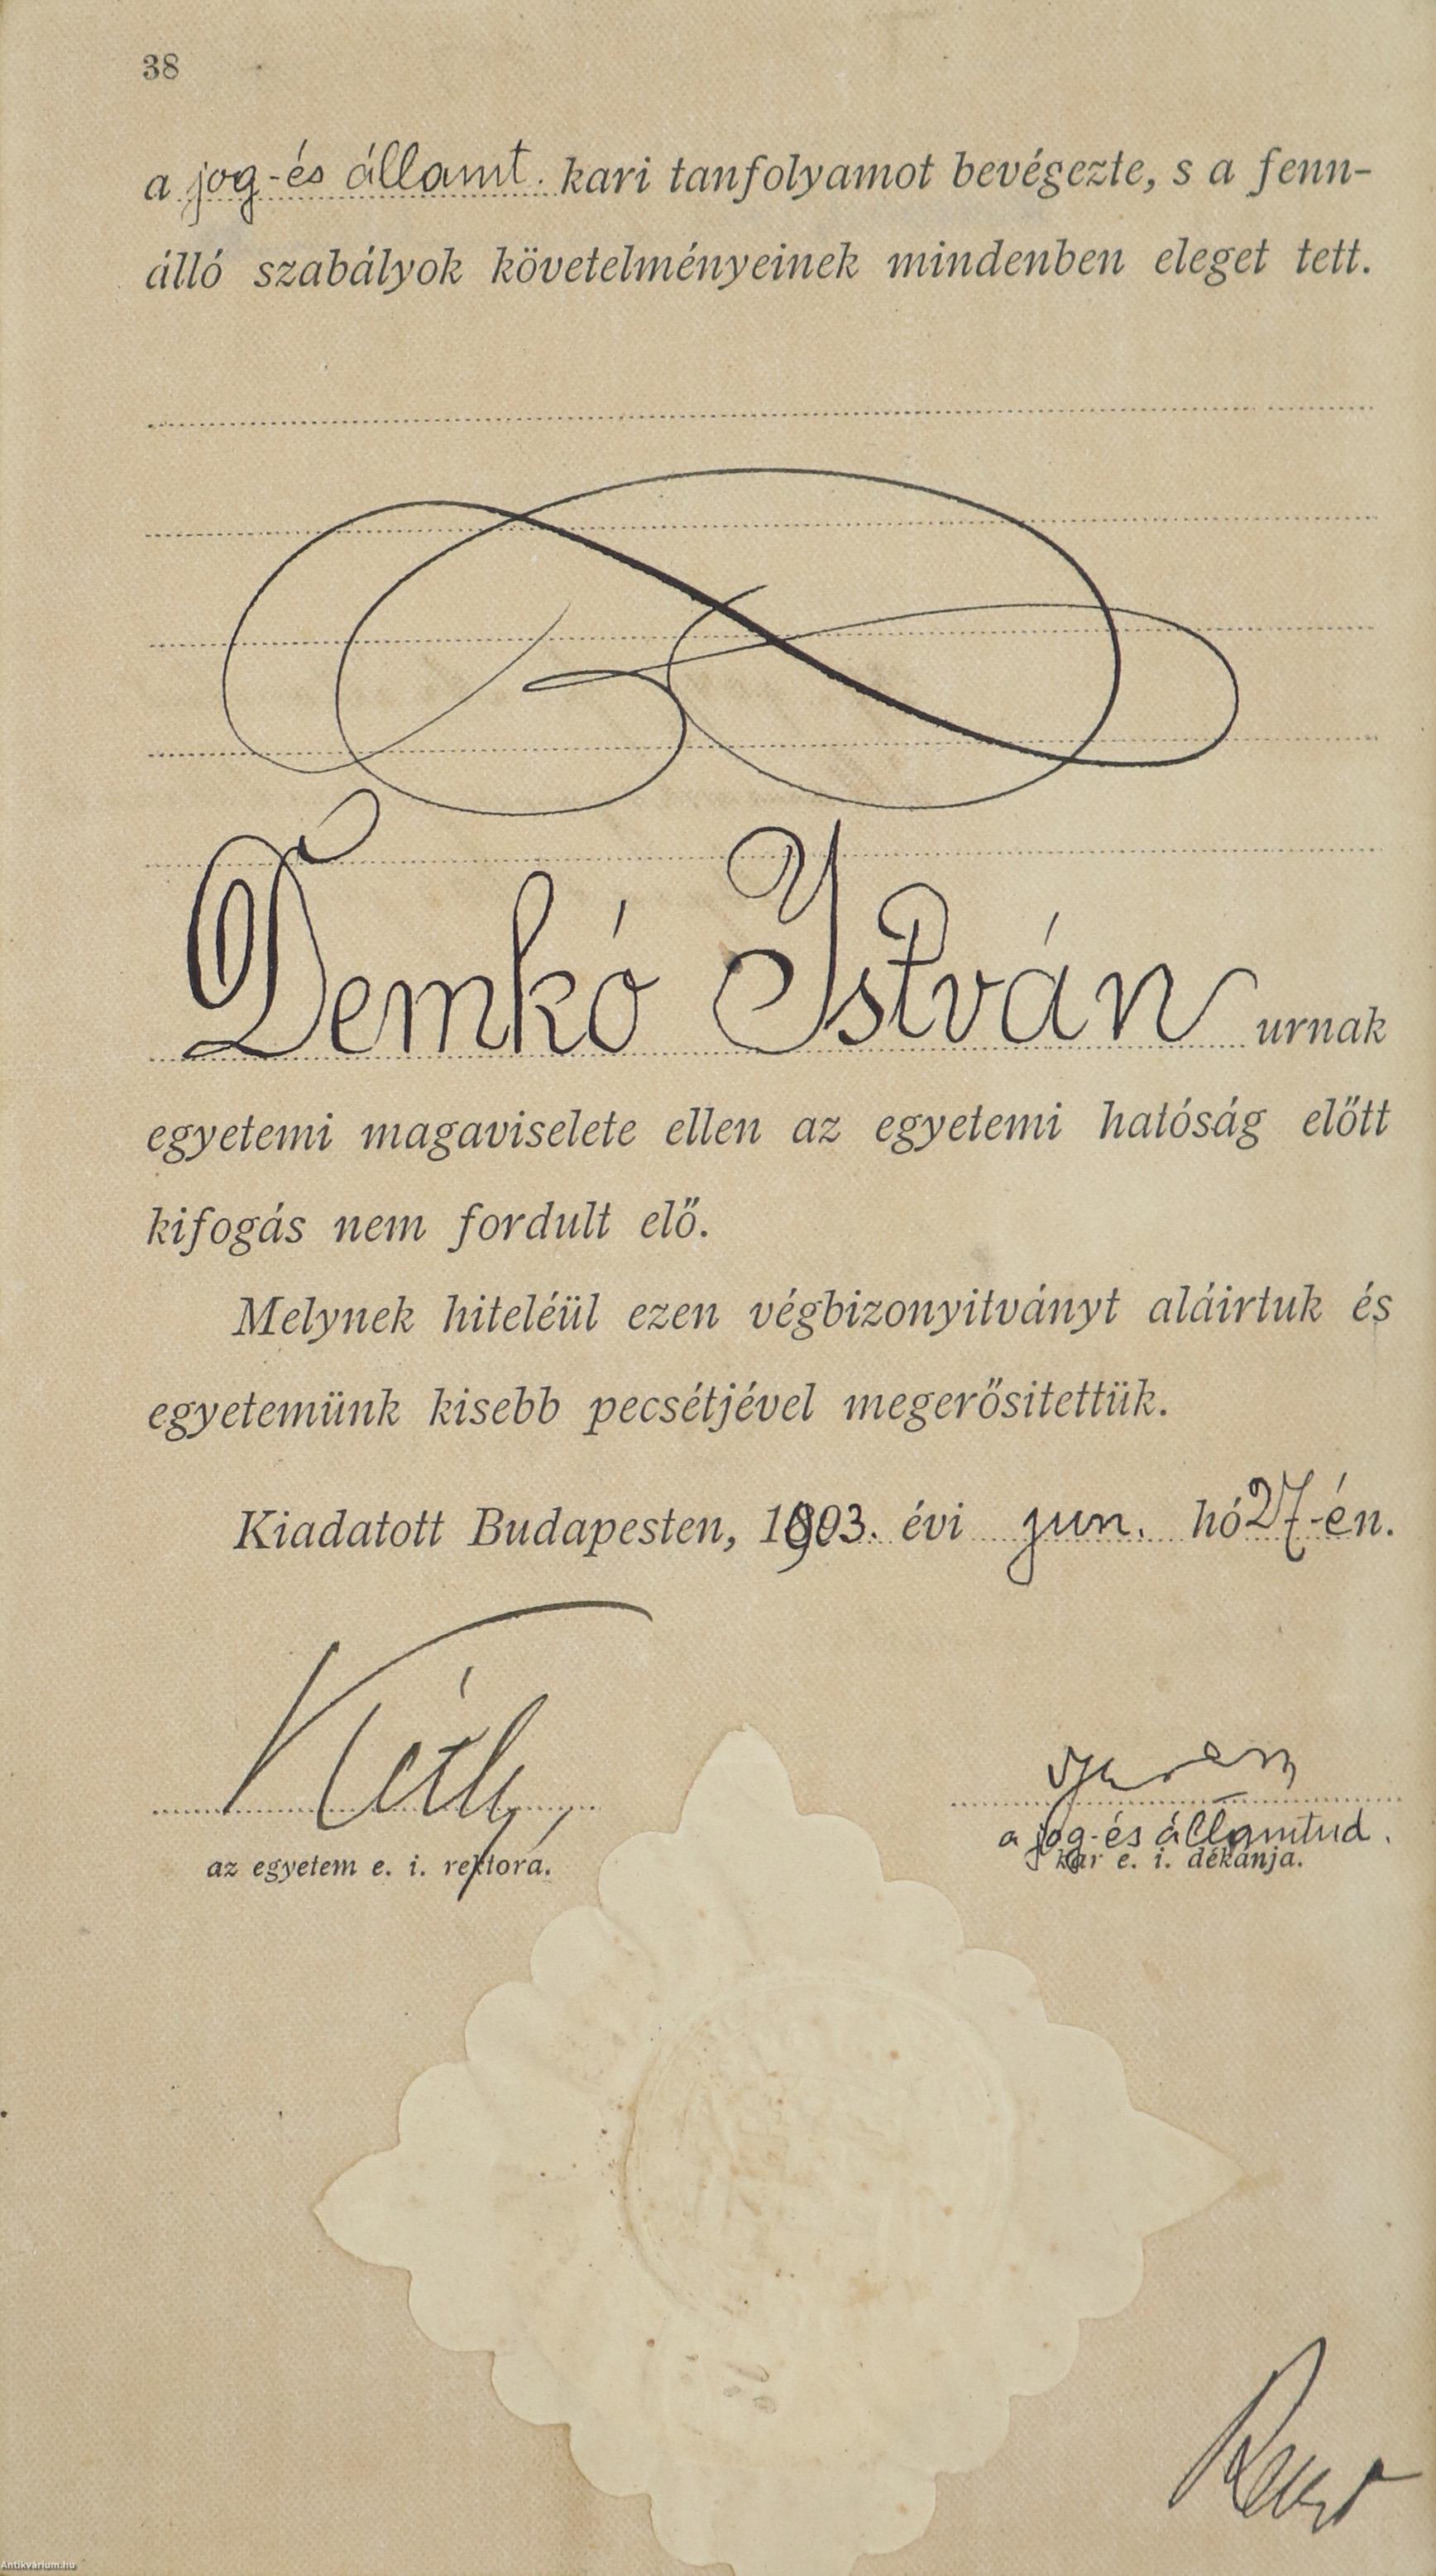 38
a jog-és államt. kari tanfolyamot bevégezte, s a fenn-
álló szabályok követelményeinek mindenben eleget tett.
Demkó István urnak
egyetemi magaviselete ellen az egyetemi hatóság előtt
kifogás nem fordult elő.
Melynek hiteléül ezen végbizonyitványt aláirtuk és
egyetemünk kisebb pecsétjével megerősitettük.
Kiadatott Budapesten, 1903. évi jun. hó 27-én.
Kétly
az egyetem e. i. rektora.
a jog-és államtud.
kar e. i. dékánja.
Antikvarium.hu